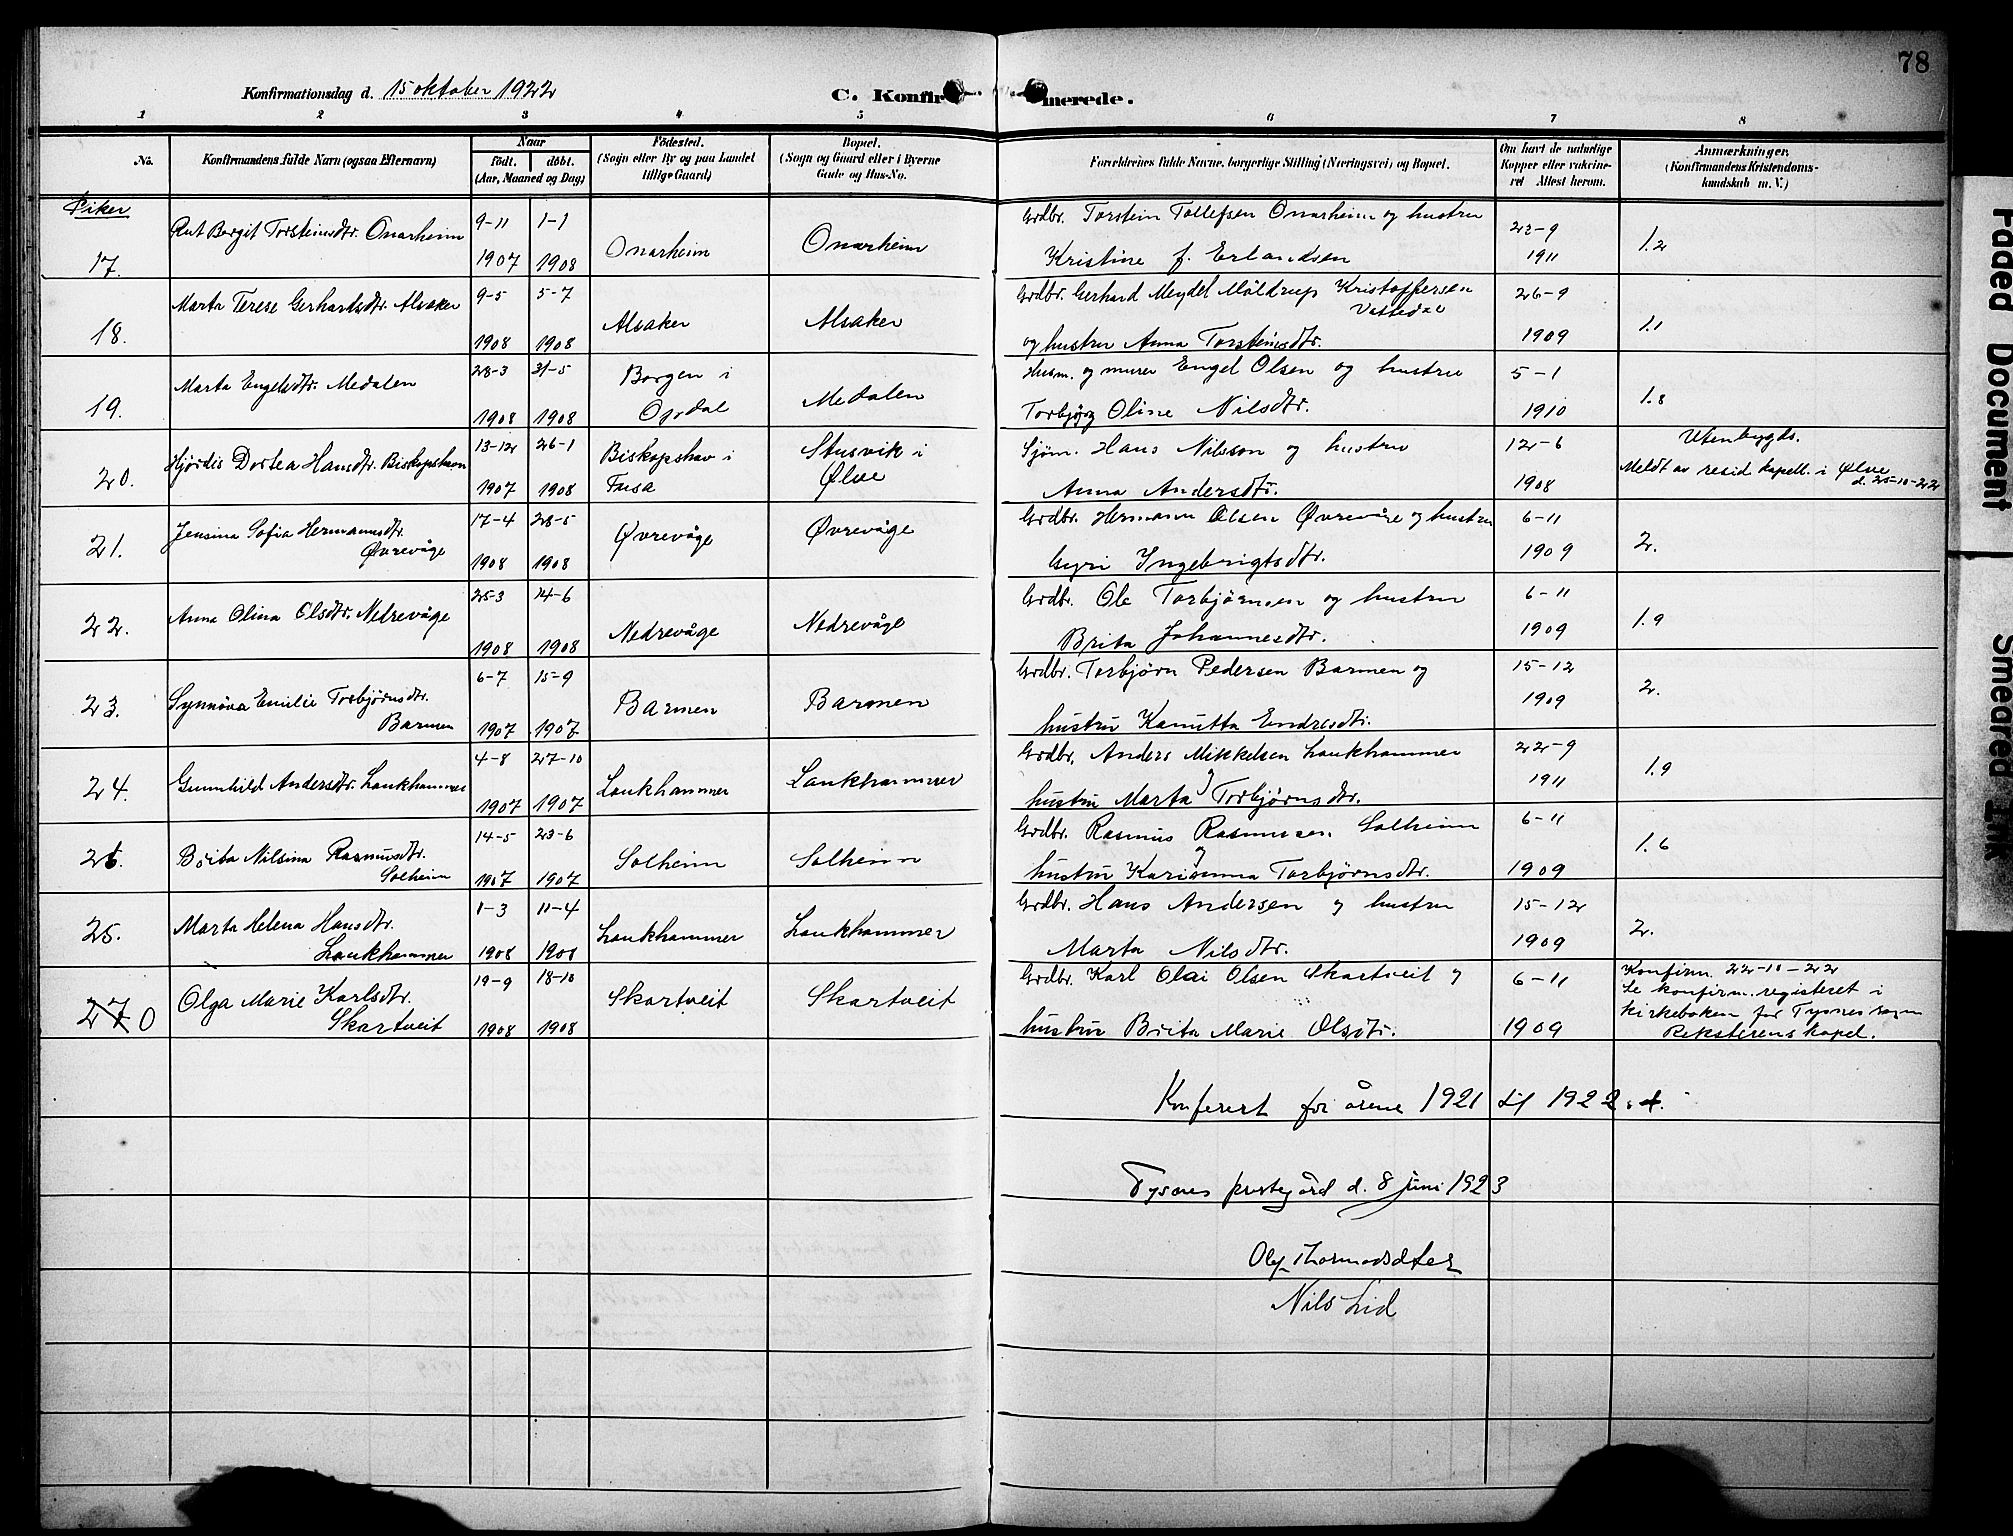 78
Konfirmationsdag d. 15 oktober 1922
C. Konfirmerede.
1 2 3 4 5 6 7 8
No. Konfirmandens fulde Navn (ogsaa Efternavn) Naar født. døbt. (Aar, Maaned og Dag) Fødested. (Sogn eller By og paa Landet tillige Gaard) Bopæl. (Sogn og Gaard eller i Byerne Gade og Hus-No. Forældrenes fulde Navne, borgerlige Stilling (Næringsvei) og Bopæl. Om havt de naturlige Kopper eller vaccineret Attest herom. Anmærkninger. (Konfirmandens Kristendomskundskab m. V.)
Piker
17. Rut Bergit Torsteinsdtr. Onarheim 9-11 1907 1-1 1908 Onarheim Onarheim Grdbr. Torstein Tollefsen Onarheim og hustru Kristine f. Erlandsen 22-9 1911 1.2
18. Marta Terese Gerhartsdtr. Alsaker 9-5 1908 5-7 1908 Alsaker Alsaker Grdbr. Gerhard Meydel Møldrup Kristoffersen og hustru Anna Torsteinsdtr. 26-9 1909 1.1
19. Marta Engelsdtr. Medalen 28-3 1908 31-5 1908 Borgen i Opdal Medalen Husm. og murer Engel Olsen og hustru Torbjørg Oline Nilsdtr. 5-1 1910 1.8
20. Hjørdis Dortea Hansdtr. Biskopshavn 13-12 1907 26-1 1908 Biskopshav i Fusa Stusvik i Ølve Sjøm. Hans Nilsson og hustru Anna Andersdtr. 12-6 1908 Utenbygds. Meldt av resid kapell. i Ølve d. 25-10-22
21. Jensina Sofia Hermannsdtr. Øvrevåge 17-4 1908 28-5 1908 Øvrevåge Øvrevåge Grdbr. Hermann Olsen Øvrevåge og hustru Gyri Ingebrigtsdtr. 6-11 1909 2.
22. Anna Olina Olsdtr. Nedrevåge 25-3 1908 14-6 1908 Nedrevåge Nedrevåge Grdbr. Ole Torbjørnsen og hustru Brita Johannesdtr. 6-11 1909 1.9
23. Synnøva Emilie Torbjørnsdtr. Barmen 6-7 1907 15-9 1907 Barmen Barmen Grdbr. Torbjørn Pedersen Barmen og hustru Kanutta Endresdtr. 15-12 1909 2.
24. Gunnhild Andersdtr. Laukhammer 4-8 1907 27-10 1907 Laukhammer Laukhammer Grdbr. Anders Mikkelsen Laukhammer og hustru Marta Torbjørnsdtr. 22-9 1911 1.9
Brita Nilsina Rasmusdtr. Solheim 14-5 1907 23-6 1907 Solheim Solheim Grdbr. Rasmus Rasmussen Solheim og hustru Karianna Torbjørnsdtr. 6-11 1909 1.6
25. Marta Helena Hansdtr. Laukhammer 1-3 1908 11-4 1908 Laukhammer Laukhammer Grdbr. Hans Andersen og hustru Marta Nilsdtr. 15-12 1909 2.
27 0 Olga Marie Karlsdtr. Skartveit 19-9 1908 18-10 1908 Skartveit Skartveit Grdbr. Karl Olai Olsen Skartveit og hustru Brita Marie Olsdtr. 6-11 1909 Konfirm. 22-10-22 Se konfirm. registeret i kirkeboken for Tysnes sogn Reksterens kapel.
Konferert for årene 1921 til 1922
Tysnes prestegård d. 8 juni 1923
Nils Lid
Faded Document
Smeared Ink